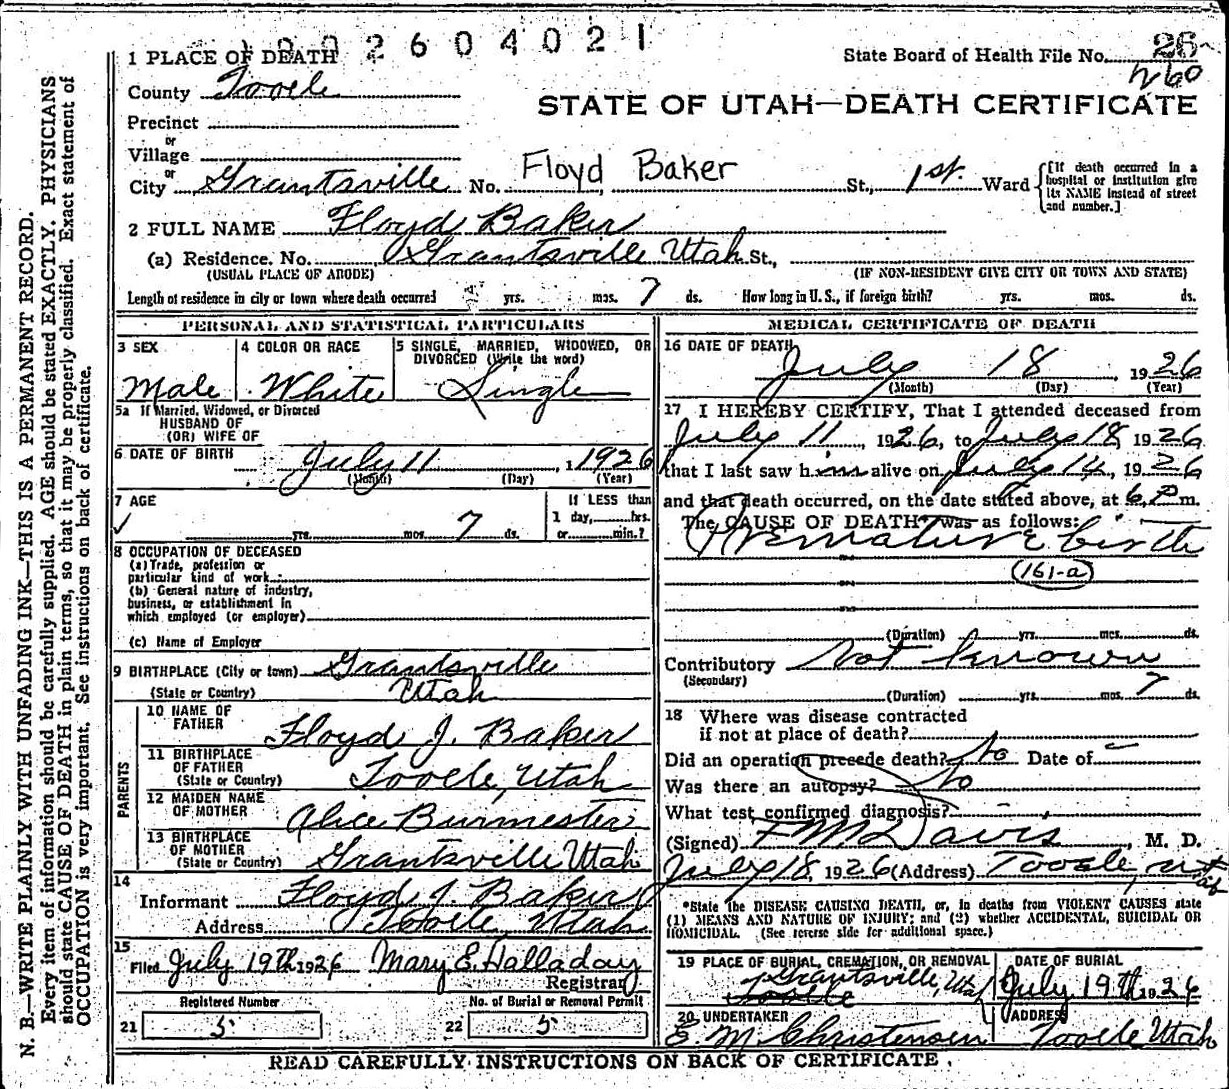 1002604021
1 PLACE OF DEATH
State Board of Health File No. 26
260
County Tooele
STATE OF UTAH—DEATH CERTIFICATE
Precinct
or
Village
or
City Grantsville No. Floyd Baker St., 1st. Ward
[If death occurred in a
hospital or institution give
its NAME instead of street
and number.]
2 FULL NAME Floyd Baker
(a) Residence. No. Grantsville Utah St.,
(USUAL PLACE OF ABODE) (IF NON-RESIDENT GIVE CITY OR TOWN AND STATE)
Length of residence in city or town where death occurred yrs. mos. 7 ds. How long in U. S., if foreign birth? yrs. mos. ds.
PERSONAL AND STATISTICAL PARTICULARS
3 SEX
Male
4 COLOR OR RACE
White
5 SINGLE, MARRIED, WIDOWED, OR
DIVORCED (Write the word)
Single
5a If Married, Widowed, or Divorced
HUSBAND OF
(OR) WIFE OF
6 DATE OF BIRTH July 11, 1 1926
(Month) (Day) (Year)
7 AGE
yrs. mos. 7 ds.
If LESS than
1 day, hrs.
or min.?
8 OCCUPATION OF DECEASED
(a) Trade, profession or
particular kind of work
(b) General nature of industry,
business, or establishment in
which employed (or employer)
(c) Name of Employer
9 BIRTHPLACE (City or town) Grantsville
(State or Country) Utah
PARENTS
10 NAME OF
FATHER Floyd J. Baker
11 BIRTHPLACE
OF FATHER
(State or Country) Tooele, Utah
12 MAIDEN NAME
OF MOTHER Alice Burmester
13 BIRTHPLACE
OF MOTHER
(State or Country) Grantsville Utah
14
Informant Floyd J. Baker
Address Tooele, Utah
15
Filed July 19th 1926 Mary E. Halladay
Registrar
Registered Number No. of Burial or Removal Permit
21 5 22 5
MEDICAL CERTIFICATE OF DEATH
16 DATE OF DEATH
July 18, 1926
(Month) (Day) (Year)
17 I HEREBY CERTIFY, That I attended deceased from
July 11, 1926, to July 18, 1926
that I last saw him alive on July 14, 1926
and that death occurred, on the date stated above, at 6 P.m.
The CAUSE OF DEATH* was as follows:
Premature birth
161-a
(Duration) yrs. mos. ds.
Contributory Not known
(Secondary)
(Duration) yrs. mos. 7 ds.
18 Where was disease contracted
if not at place of death?
Did an operation precede death? No Date of
Was there an autopsy? No
What test confirmed diagnosis?
(Signed) F M Davis, M. D.
July 18, 1926 (Address) Tooele, Utah
*State the DISEASE CAUSING DEATH, or, in deaths from VIOLENT CAUSES state
(1) MEANS AND NATURE OF INJURY; and (2) whether ACCIDENTAL, SUICIDAL OR
HOMICIDAL. (See reverse side for additional space.)
19 PLACE OF BURIAL, CREMATION, OR REMOVAL
Grantsville, Utah
Tooele
DATE OF BURIAL
July 19th 1926
20 UNDERTAKER
E. M. Christensen
ADDRESS
Tooele Utah
READ CAREFULLY INSTRUCTIONS ON BACK OF CERTIFICATE.
N. B.—WRITE PLAINLY WITH UNFADING INK—THIS IS A PERMANENT RECORD.
Every item of information should be carefully supplied. AGE should be stated EXACTLY. PHYSICIANS
should state CAUSE OF DEATH in plain terms, so that it may be properly classified. Exact statement of
OCCUPATION is very important. See instructions on back of certificate.